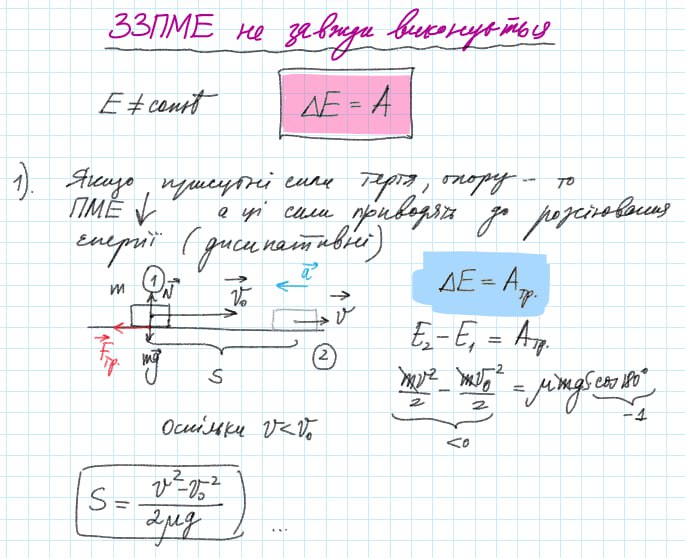 ЗЗПМЕ не завжди виконується
E ≠ const
ΔE = A
1). Якщо присутні сили тертя, опору – то
ПМЕ ↓ а ці сили приводять до розсіювання
енергії (дисипативні)
m ① N⃗ v⃗₀ a⃗ v⃗
F⃗тр. mg⃗ S ②
ΔE = Aтр.
E₂ − E₁ = Aтр.
mv²/2 − mv₀²/2 = μmgS cos180°
<0 −1
Оскільки v < v₀
S = (v² − v₀²)/(2μg) ...